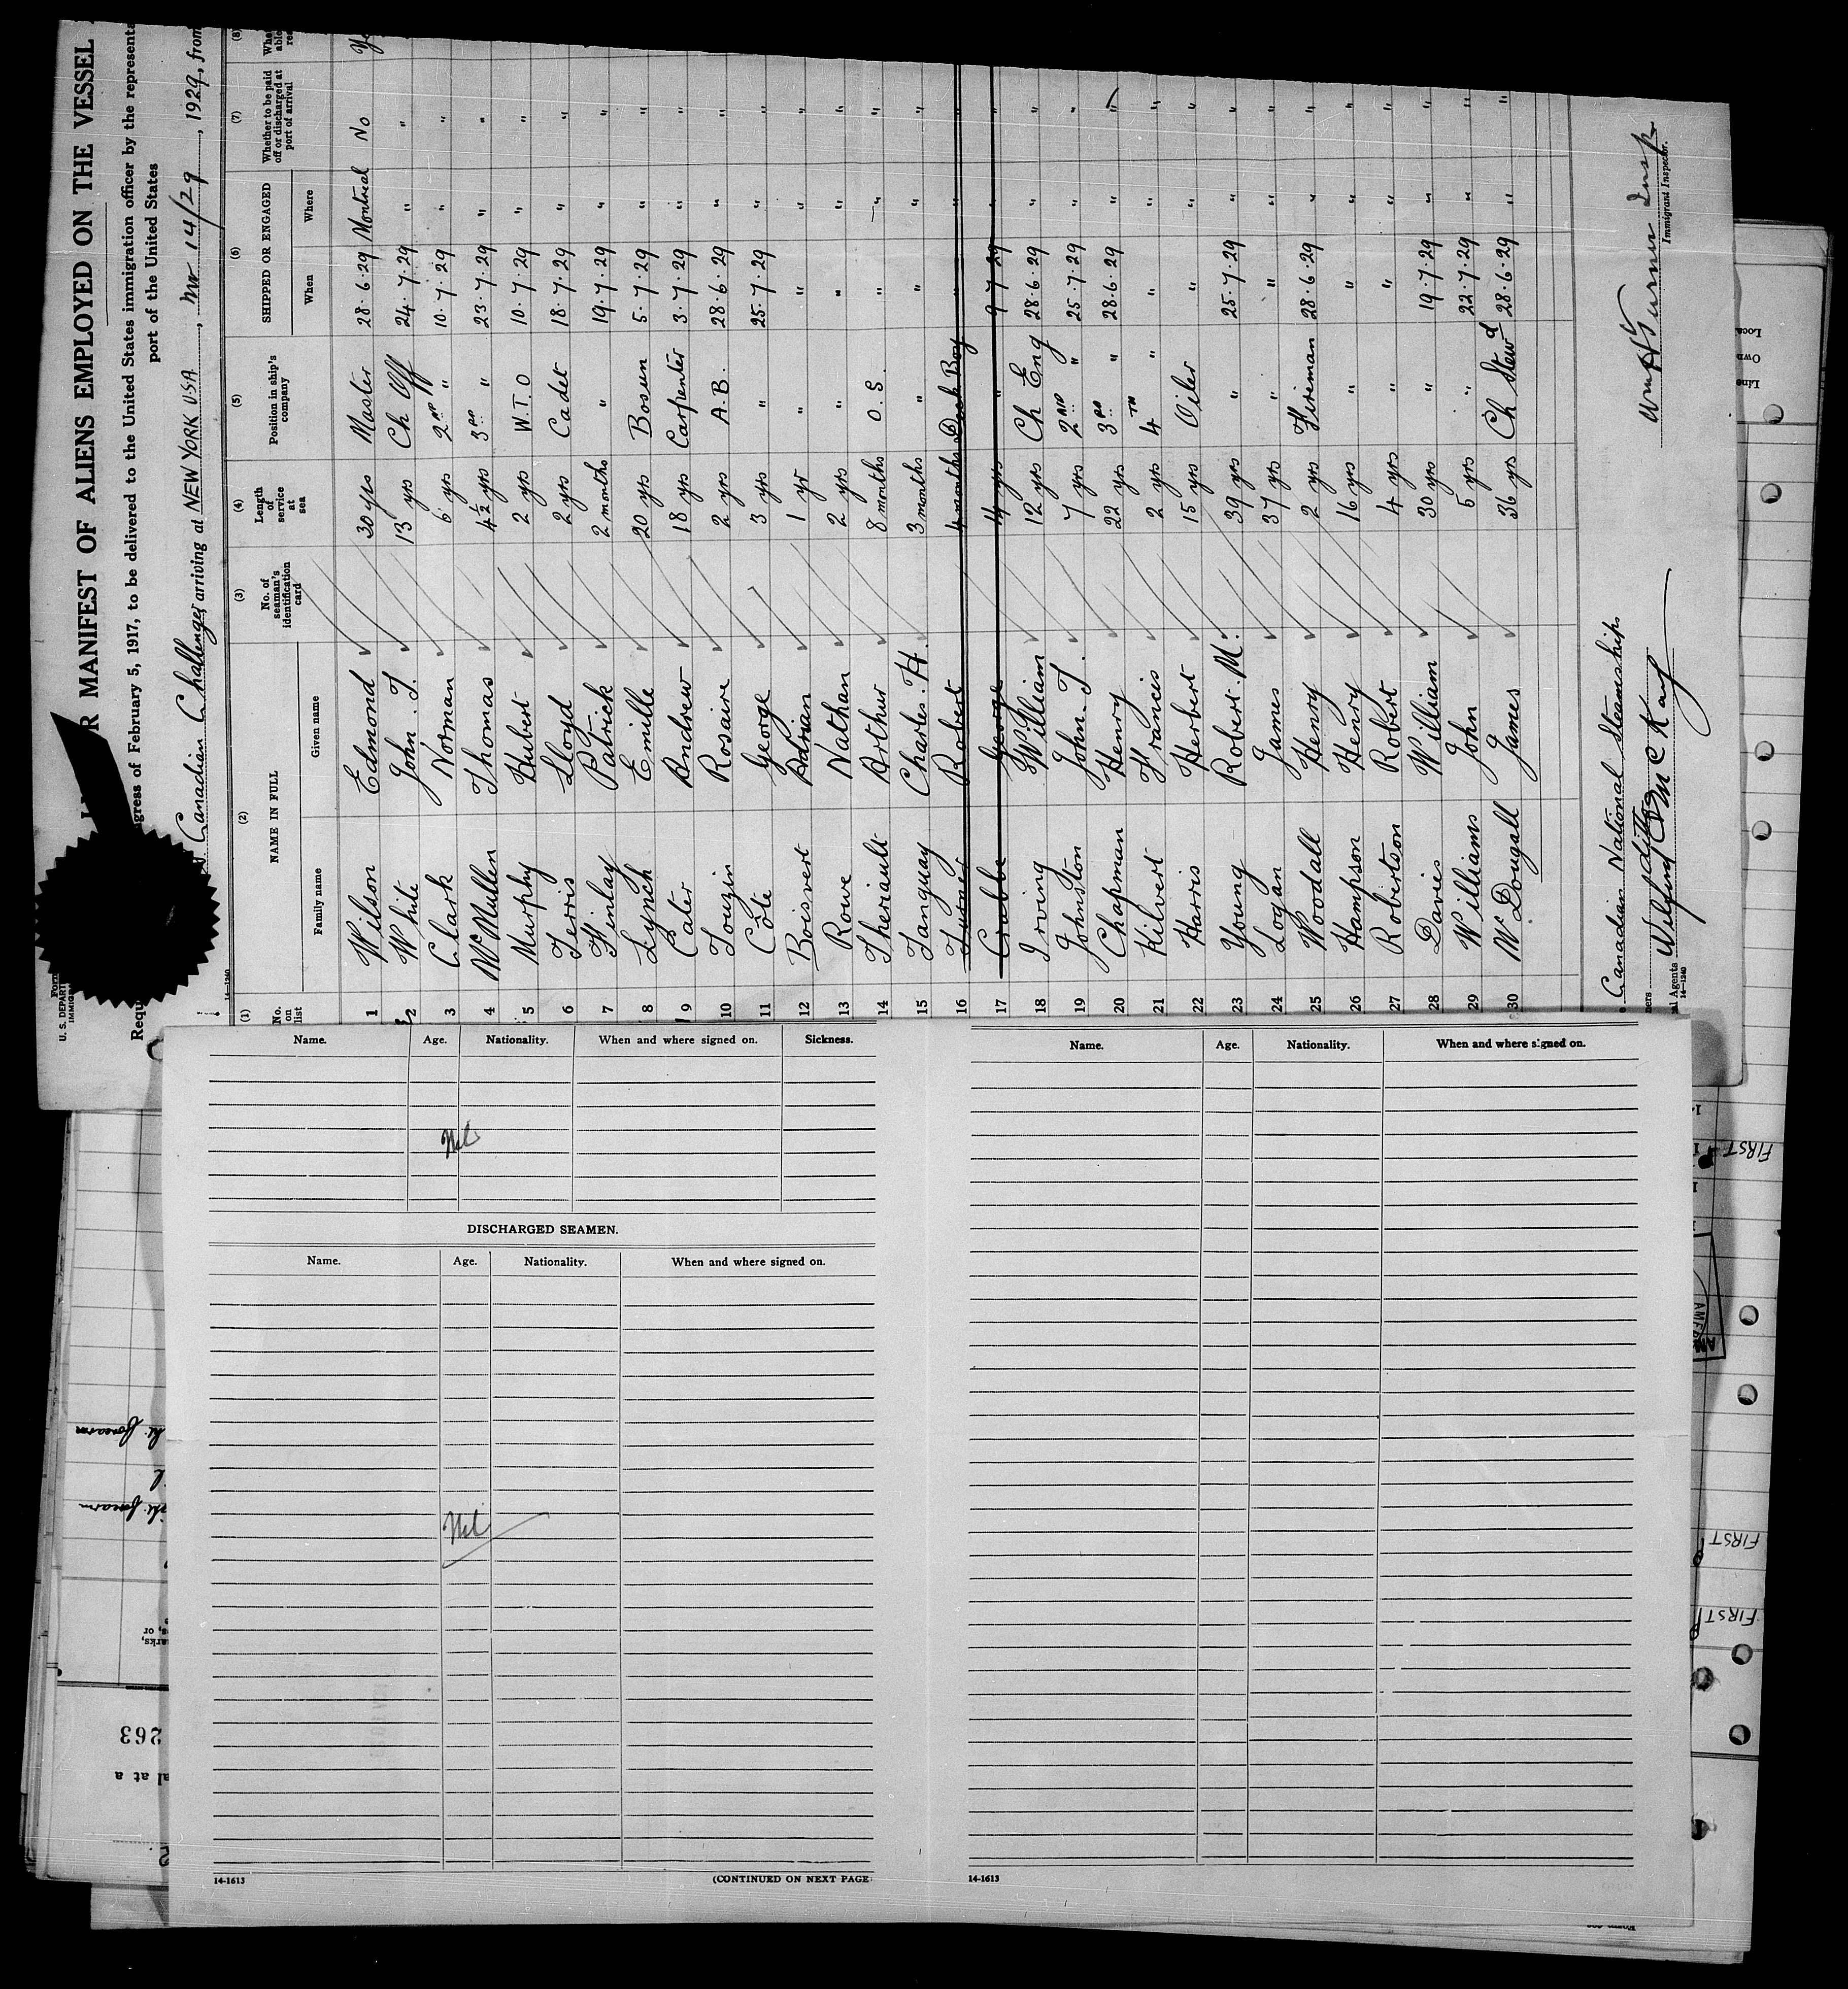 R MANIFEST OF ALIENS EMPLOYED ON THE VESSEL
ngress of February 5, 1917, to be delivered to the United States immigration officer by the representa
port of the United States
Canadian Challenger, arriving at NEW YORK USA, 14/29, 1929, from
14—1240
(1) (2) (3) (4) (5) (6) (7) (8)
No. on list NAME IN FULL No. of seaman's identification card Length of service at sea Position in ship's company SHIPPED OR ENGAGED Whether to be paid off or discharged at port of arrival
Family name Given name When Where
1 Wilson Edmond 30 yrs Master 28.6.29 Montreal No
2 White John. T. 13 yrs Ch Off 24.7.29 " "
3 Clark Norman 6 yrs 2ND " 10.7.29 " "
4 McMullen Thomas 4½ yrs 3RD " 23.7.29 " "
5 Murphy Hubert 2 yrs W.T.O 10.7.29 " "
6 Ferris Lloyd 2 yrs Cadet 18.7.29 " "
7 Finlay Patrick 2 months " 19.7.29 " "
8 Lynch Emille 20 yrs Bosun 5.7.29 " "
9 Cater Andrew 18 yrs Carpenter 3.7.29 " "
10 Touzin Rosaire 2 yrs A.B. 28.6.29 " "
11 Côte George 3 yrs " 25.7.29 " "
12 Boisvert Adrian 1 yr " " " "
13 Rowe Nathan 2 yrs " " " "
14 Theriault Arthur 8 months O.S. " " "
15 Tanguay Charles. H. 3 months " " " "
16 Turner Robert 4 months Deck Boy " " "
17 Crabbe George 4 yrs " 9.7.29 " "
18 Irving William 12 yrs Ch Eng 28.6.29 " "
19 Johnston John. T. 7 yrs 2ND " 25.7.29 " "
20 Chapman Henry 22 yrs 3RD " 28.6.29 " "
21 Kilvert Francis 2 yrs 4TH " " " "
22 Harris Herbert 15 yrs Oiler " " "
23 Young Robert. M. 39 yrs " 25.7.29 " "
24 Logan James 37 yrs " " " "
25 Woodall Henry 2 yrs Fireman 28.6.29 " "
26 Hampson Henry 16 yrs " " " "
27 Robertson Robert 4 yrs " " " "
28 Davies William 30 yrs " 19.7.29 " "
29 Williams John 5 yrs " 22.7.29 " "
30 McDougall James 36 yrs Ch Stewd 28.6.29 " "
Canadian National Steamships
ners ditto
al Agents
14—1240
Immigrant Inspector.
Name. Age. Nationality. When and where signed on. Sickness.
Nil
DISCHARGED SEAMEN.
Name. Age. Nationality. When and where signed on.
Nil
14-1613 (CONTINUED ON NEXT PAGE
Name. Age. Nationality. When and where signed on.
14-1613
FIRST
FIRST
FIRST
263
al at a